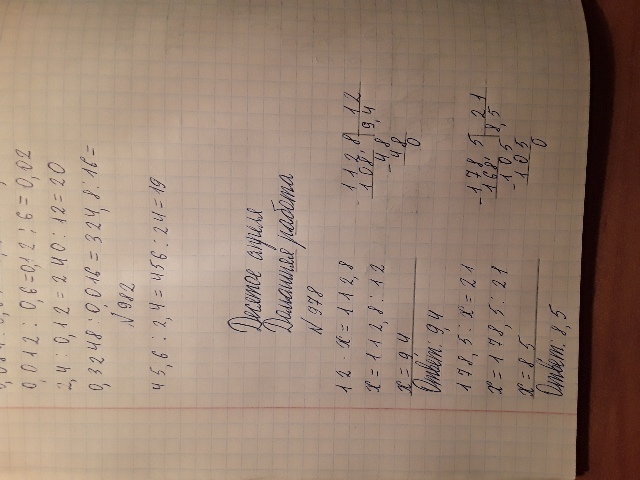 0,012 : 0,6 = 0,12 : 6 = 0,02
2,4 : 0,12 = 240 : 12 = 20
0,3248 : 0,016 = 324,8 : 16 =
N 982
45,6 : 2,4 = 456 : 24 = 19
Десятое апреля
Домашняя работа
N 978
12 · x = 112,8
x = 112,8 : 12
x = 9,4
Ответ: 9,4
- 112,8 | 12
108, | 9,4
- 48
48
0
178,5 : x = 21
x = 178,5 : 21
x = 8,5
Ответ: 8,5
- 178,5 | 21
168, | 8,5
- 105
105
0